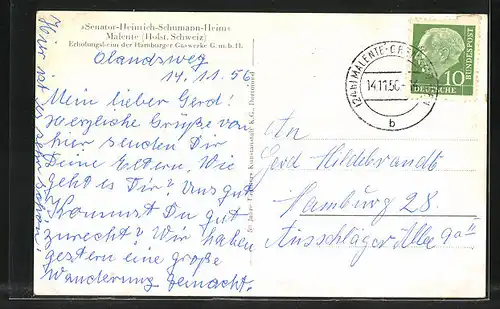 »Senator-Heinrich-Schumann-Heim«
Malente (Holst. Schweiz)
Erholungsheim der Hamburger Gaswerke G. m. b. H.
Olandsweg
14.11.56
Mein lieber Gerd!
Herzliche Grüße von
hier senden Dir
Deine Eltern. Wie
geht es Dir? Uns gut
Kommst Du gut
zurecht? Wir haben
gestern eine große
Wanderung gemacht.
Hier ist es sehr schön!
An
Gerd Hildebrandt
Hamburg 28.
Ausschläger Allee
MALENTE-GREMS
14.11.56
b
10
DEUTSCHE
BUNDESPOST